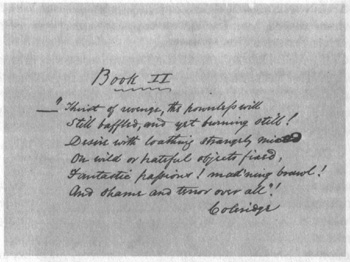 Book II
— "Thirst of revenge, the powerless will
Still baffled, and yet burning still!
Desire with loathing strangely mixed
On wild or hateful objects fixed,
Fantastic passions! mad'ning brawl!
And shame and terror over all"!
Coleridge